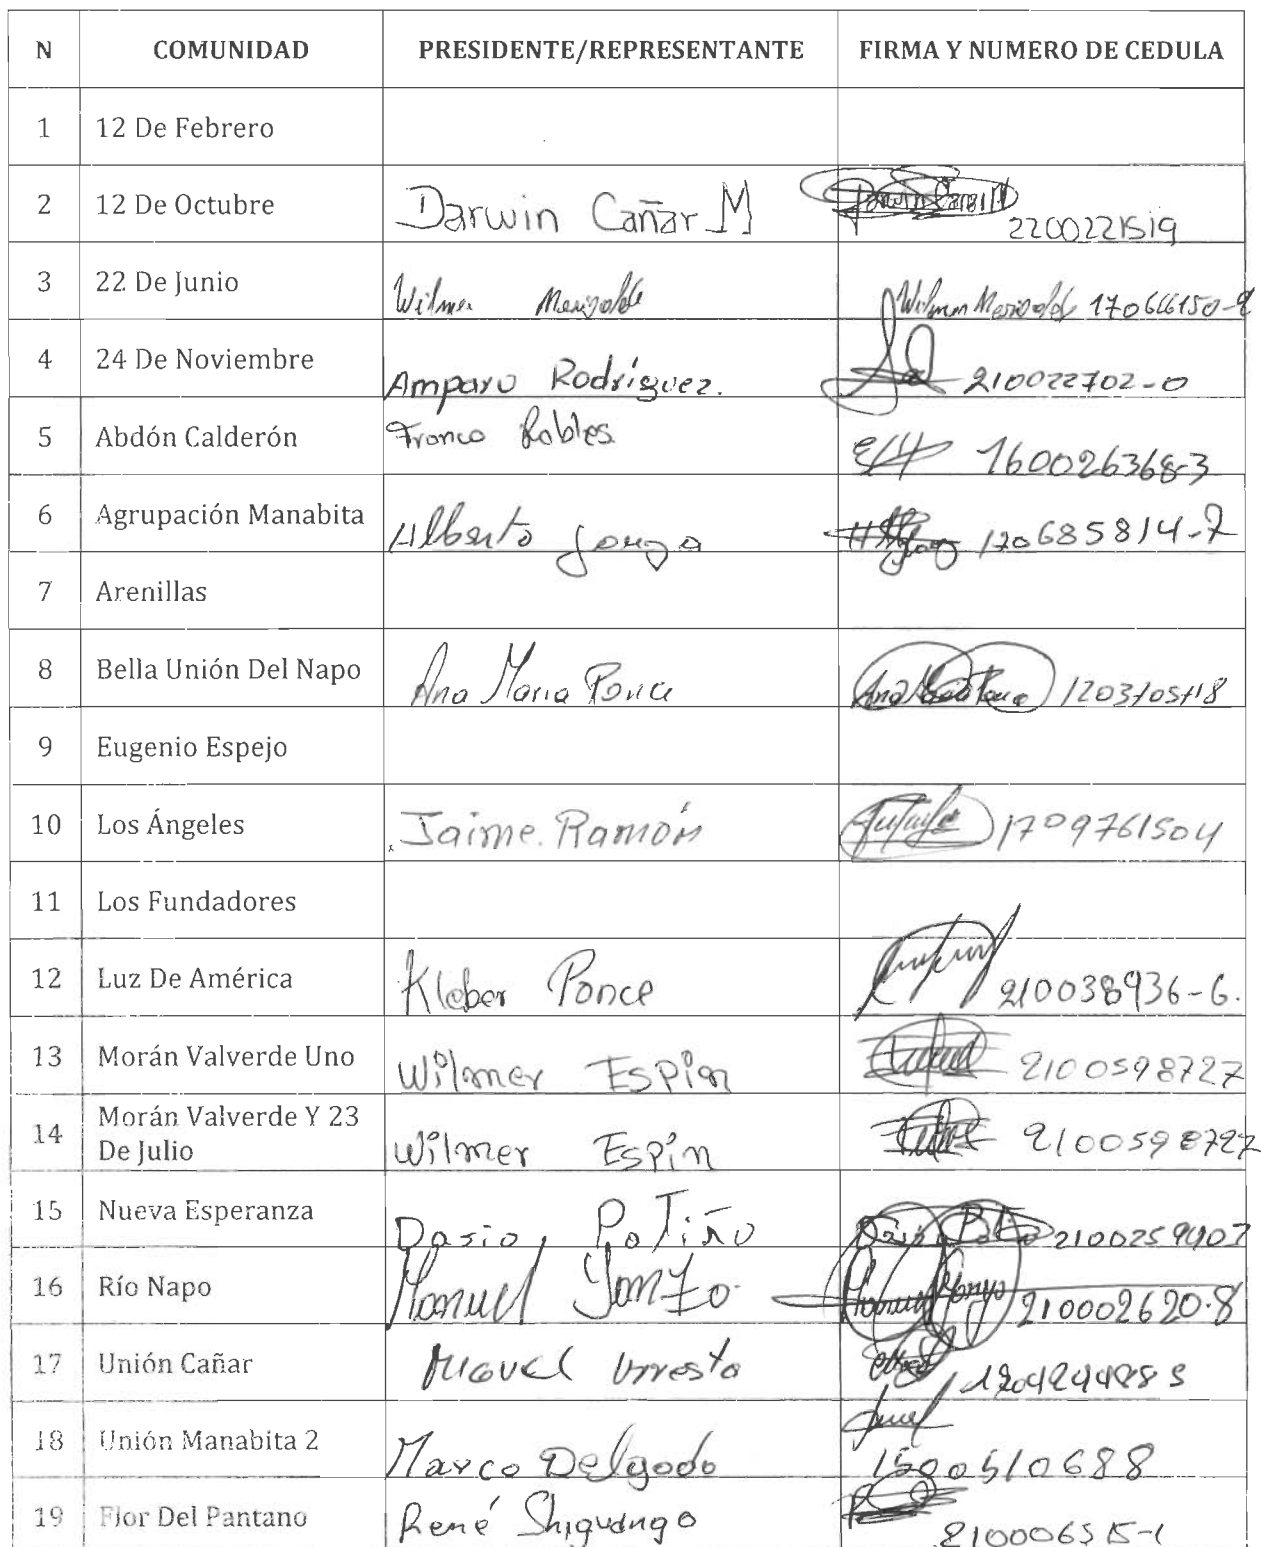 N COMUNIDAD PRESIDENTE/REPRESENTANTE FIRMA Y NUMERO DE CEDULA
1 12 De Febrero
2 12 De Octubre Darwin Cañar M Darwin Cañar M 2200221519
3 22 De Junio Wilmer Merizalde Wilmer Merizalde
4 24 De Noviembre Amparo Rodríguez. 210022702-0
5 Abdón Calderón Franco Robles 160026368-3
6 Agrupación Manabita Alberto 170685814-7
7 Arenillas
8 Bella Unión Del Napo Ana Maria Ponce Ana Maria Ponce
9 Eugenio Espejo
10 Los Ángeles Jaime. Ramón 1709761504
11 Los Fundadores
12 Luz De América Kleber Ponce 210038936-6.
13 Morán Valverde Uno Wilmer Espin 2100598727
14 Morán Valverde Y 23
De Julio Wilmer Espín 2100598727
15 Nueva Esperanza Dasio Patiño 2100259407
16 Río Napo Manuel 210002620-8
17 Unión Cañar Miguel Urresta
18 Unión Manabita 2 Marco Delgado 1500510688
19 Flor Del Pantano René Shiguango 210006515-1